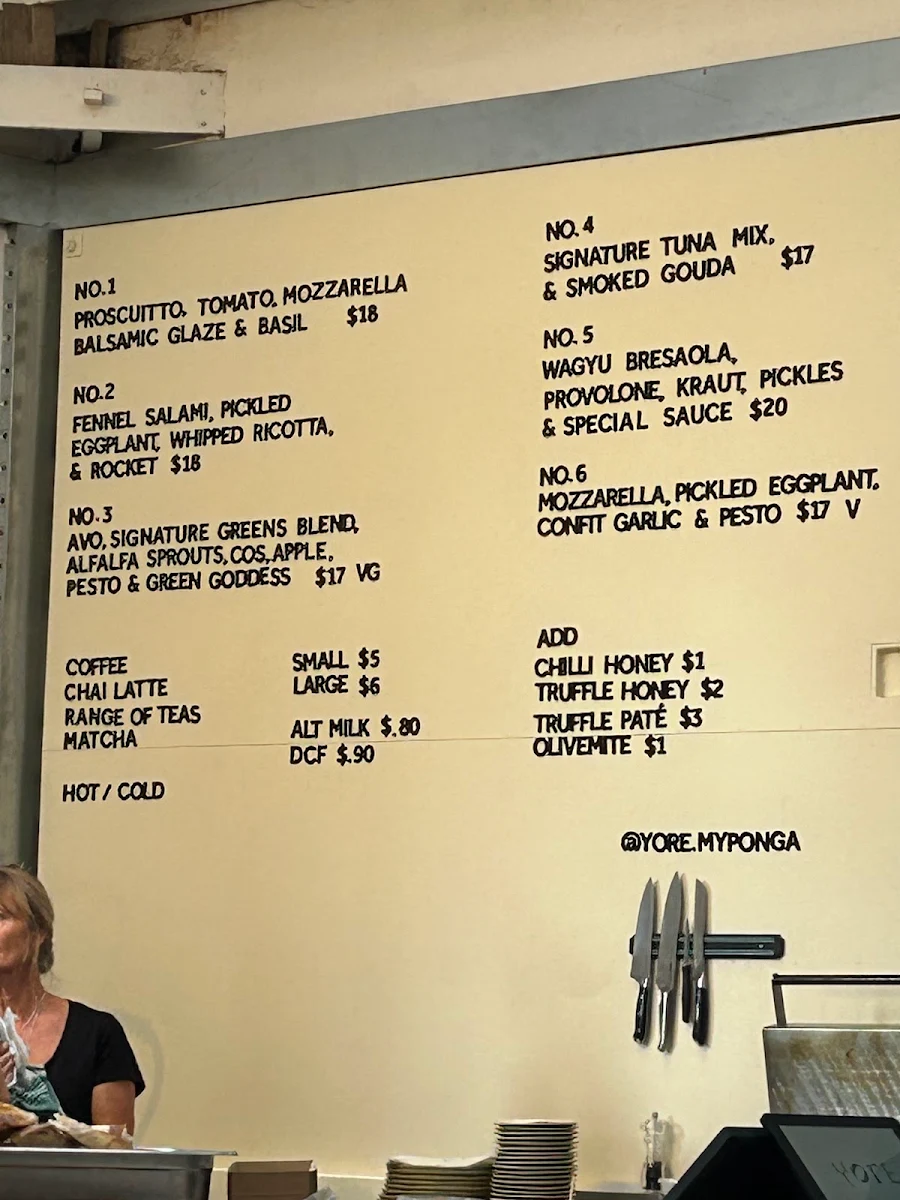 NO.1
PROSCUITTO, TOMATO, MOZZARELLA
BALSAMIC GLAZE & BASIL $18
NO.2
FENNEL SALAMI, PICKLED
EGGPLANT, WHIPPED RICOTTA,
& ROCKET $18
NO.3
AVO, SIGNATURE GREENS BLEND,
ALFALFA SPROUTS, COS, APPLE,
PESTO & GREEN GODDESS $17 VG
NO.4
SIGNATURE TUNA MIX,
& SMOKED GOUDA $17
NO.5
WAGYU BRESAOLA,
PROVOLONE, KRAUT, PICKLES
& SPECIAL SAUCE $20
NO.6
MOZZARELLA, PICKLED EGGPLANT,
CONFIT GARLIC & PESTO $17 V
COFFEE
CHAI LATTE
RANGE OF TEAS
MATCHA
HOT / COLD
SMALL $5
LARGE $6
ALT MILK $.80
DCF $.90
ADD
CHILLI HONEY $1
TRUFFLE HONEY $2
TRUFFLE PATÉ $3
OLIVEMITE $1
@YORE.MYPONGA
YORE